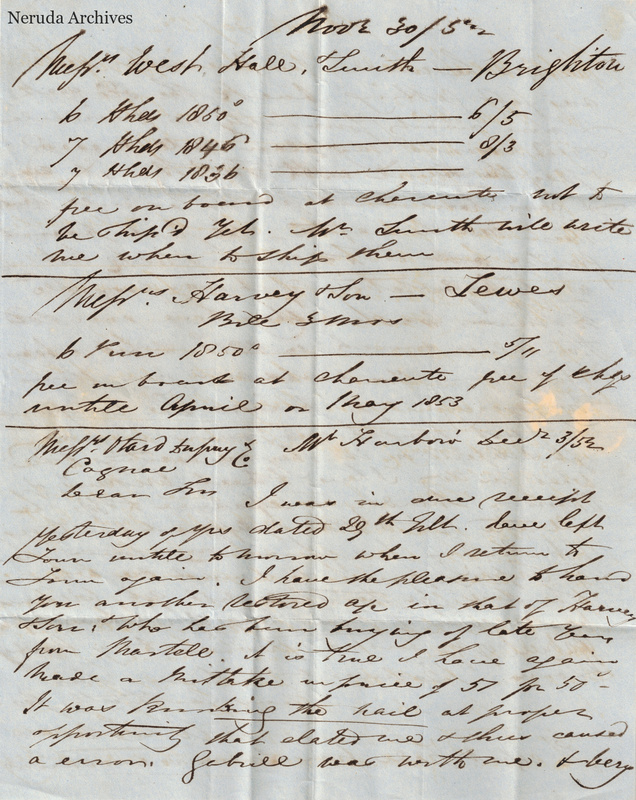 Neruda Archives
Novr 30/52
Messrs West, Hall, Smith — Brighton
6 Hhds 1850s — 6/5
7 Hhds 1846 — 8/3
7 Hhds 1836 —
free on board at Charente not to
be ship'd yet. Mr Smith will write
me when to ship them
Messrs Harvey & Son — Lewes
Bill 3 mos
6 Pun 1850s — 5/11
free on board at Charente free of chgs
untill April or May 1853
Messrs Otard Dupuy & Co Mt Harbow Decr 3/52
Cognac
Dear Sirs I was in due receipt
yesterday of yrs dated 29th Ult. have left
Town untill tomorrow when I return to
Town again. I have the pleasure to hand
you another restored a/c in that of Harvey
& Son: who has been buying of late years
from Martell. it is true I have again
made a mistake in price of 51 for 50s
It was knocking the nail at proper
opportunity that elated me & thus caused
a error. Gabriell was with me. & very